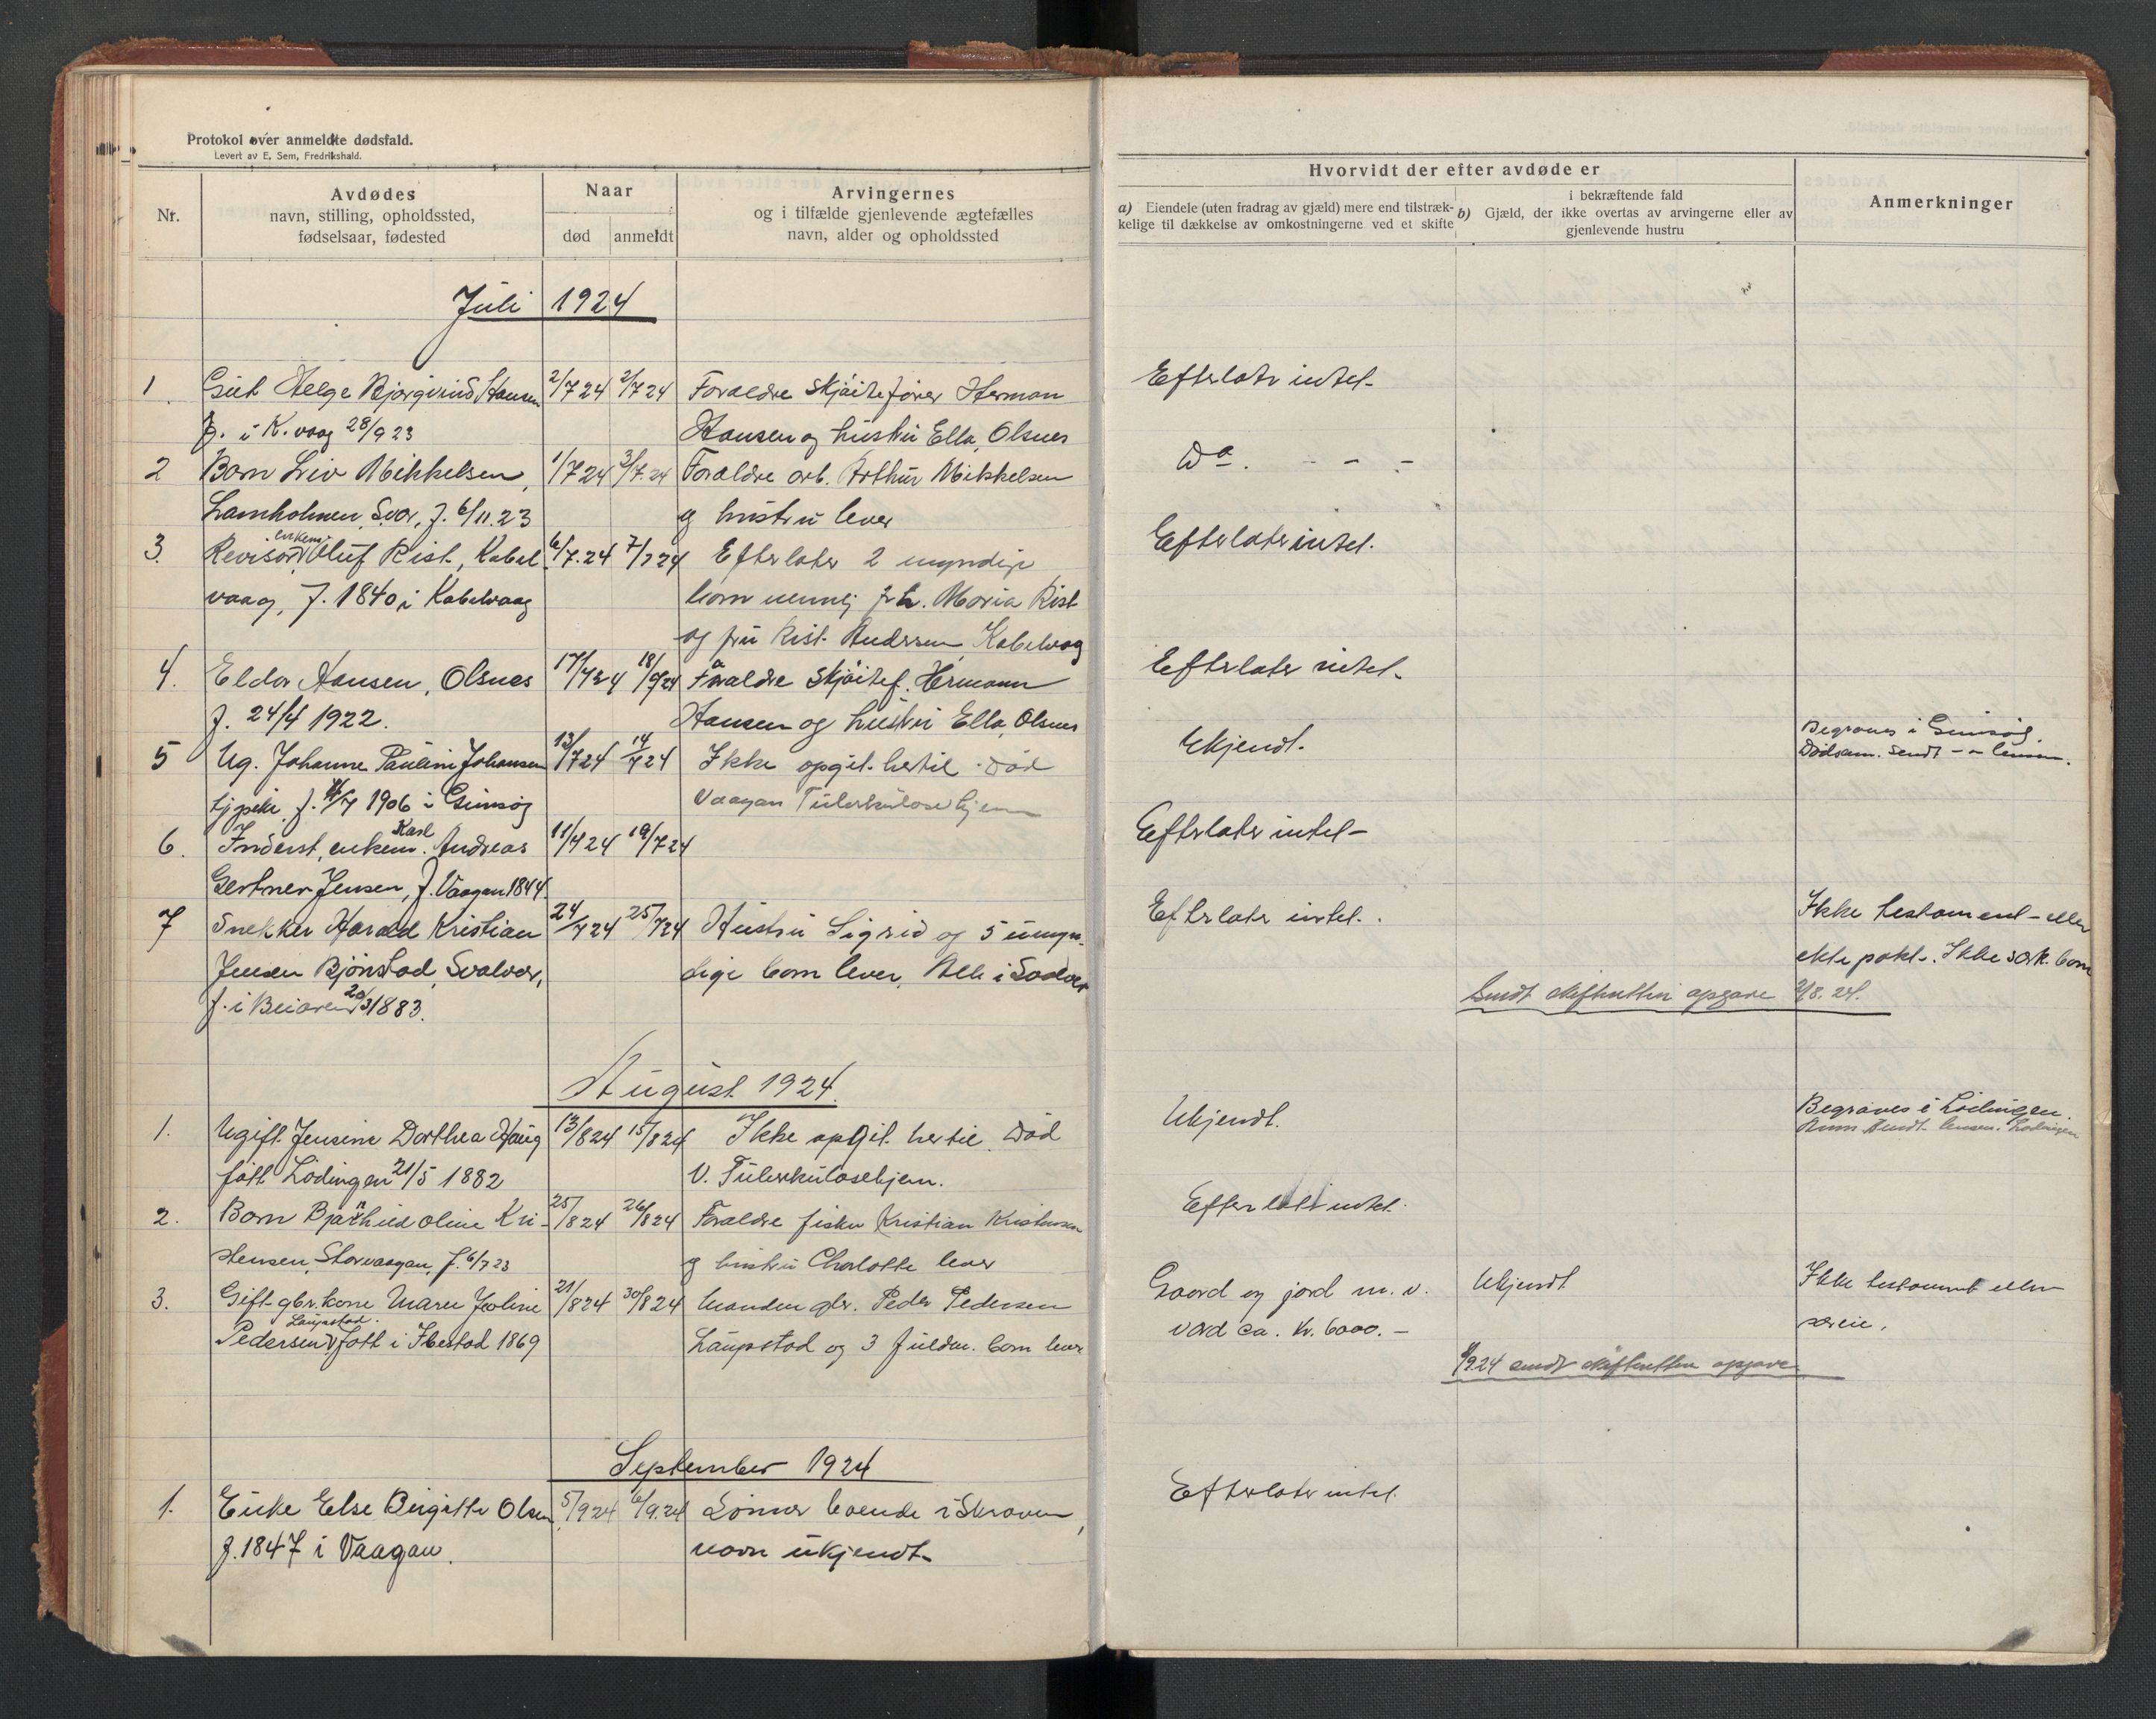 Protokol over anmeldte dødsfald.
Levert av E. Sem, Fredrikshald.
Nr.
Avdødes
navn, stilling, opholdssted,
fødselsaar, fødested
Naar
død
anmeldt
Arvingernes
og i tilfælde gjenlevende ægtefælles
navn, alder og opholdssted
Hvorvidt der efter avdøde er
a) Eiendele (uten fradrag av gjæld) mere end tilstræk-
kelige til dækkelse av omkostningerne ved et skifte
i bekræftende fald
b) Gjæld, der ikke overtas av arvingerne eller av
gjenlevende hustru
Anmerkninger
Juli 1924
1. Gut Helge Bjorgvind Hansen 2/7 24 2/7 24 Foraldre skjöitefører Herman Efterlatr intet.
f. i K.vaag 28/9 23 Hansen og hustru Ella, Olsnes
2 Barn Liv Mikkelsen, 1/7 24 3/7.24 Foraldre arb. Arthur Mikkelsen Do. - - -
Lamholmen, Svor, f. 6/11.23 og hustru lever
3. Revisor enkem. Oluf Rist, Kabel- 6/7.24 7/7 24 Efterlater 2 myndige Efterlater intet.
vaag, f. 1840 i Kabelvaag barn nemlig frk. Maria Rist
og fru Rist Andersen, Kabelvag
4. Eldor Hansen, Olsnes 17/7 24 18/7 24 Foraldre skjöitef. Hermann Efterlater intet.
f. 24/4 1922. Hansen og hustru Ella, Olsnes
5 Ug. Johanne Pauline Johansen 13/7 24 14/7 24 Ikke opgit hertil. Död Ukjendt. Begraves i Gimsöy.
tj.pike, f. /7 1906 i Gimsöy Vaagan Tuberkulosehjem Dödsanm. sendt lensm.
6. Inderst, enkem. Karl Andreas 11/7 24 19/7 24 Efterlater intet -
Gertner Jensen, f. Vaagan 1844
7 Snekker Harald Kristian 24/7 24 25/7 24 Hustru Sigrid og 5 umyn- Efterlater intet. Ikke testament - eller
Jensen Bjönstad, Svolvær, dige barn lever. Alle i Svolvær ektepakt. Ikke særk. barn
f. i Beiaren 20/3 1883. Sendt skifteretten opgave 2/8. 24.
August 1924.
1. Ugift Jensine Dorthea Haug 13/8 24 15/8 24 Ikke opgit hertil. Död Ukjendt. Begraves i Lödingen.
född Lödingen 21/5 1882 V. Tuberkulosehjem. Anm. sendt lensm. Lödingen
2. Barn Oline Kri- 25/8 24 26/8 24 Foraldre fisker Kristian Kristensen Efterlatt intet.
stensen, Storvaagan, f. 6/7 23 og hustru Charlotte lever
3. Gift gbr.kone Maren Joline 21/8 24 30/8 24 Manden gbr. Peder Pedersen Gaard og jord m. v. Ukjendt Ikke testament eller
Pedersen, Laupstad, född i Ibestad 1869 Laupstad og 3 fuldm. barn lever værd ca. Kr. 6000.- særeie.
/9.24 sendt skifteretten opgave
September 1924
1. Enke Else Birgitte Olsen 5/9 24 6/9.24 Sönner boende i Skraaven, Efterlater intet.
f. 1847 i Vaagan. navn ukjendt.